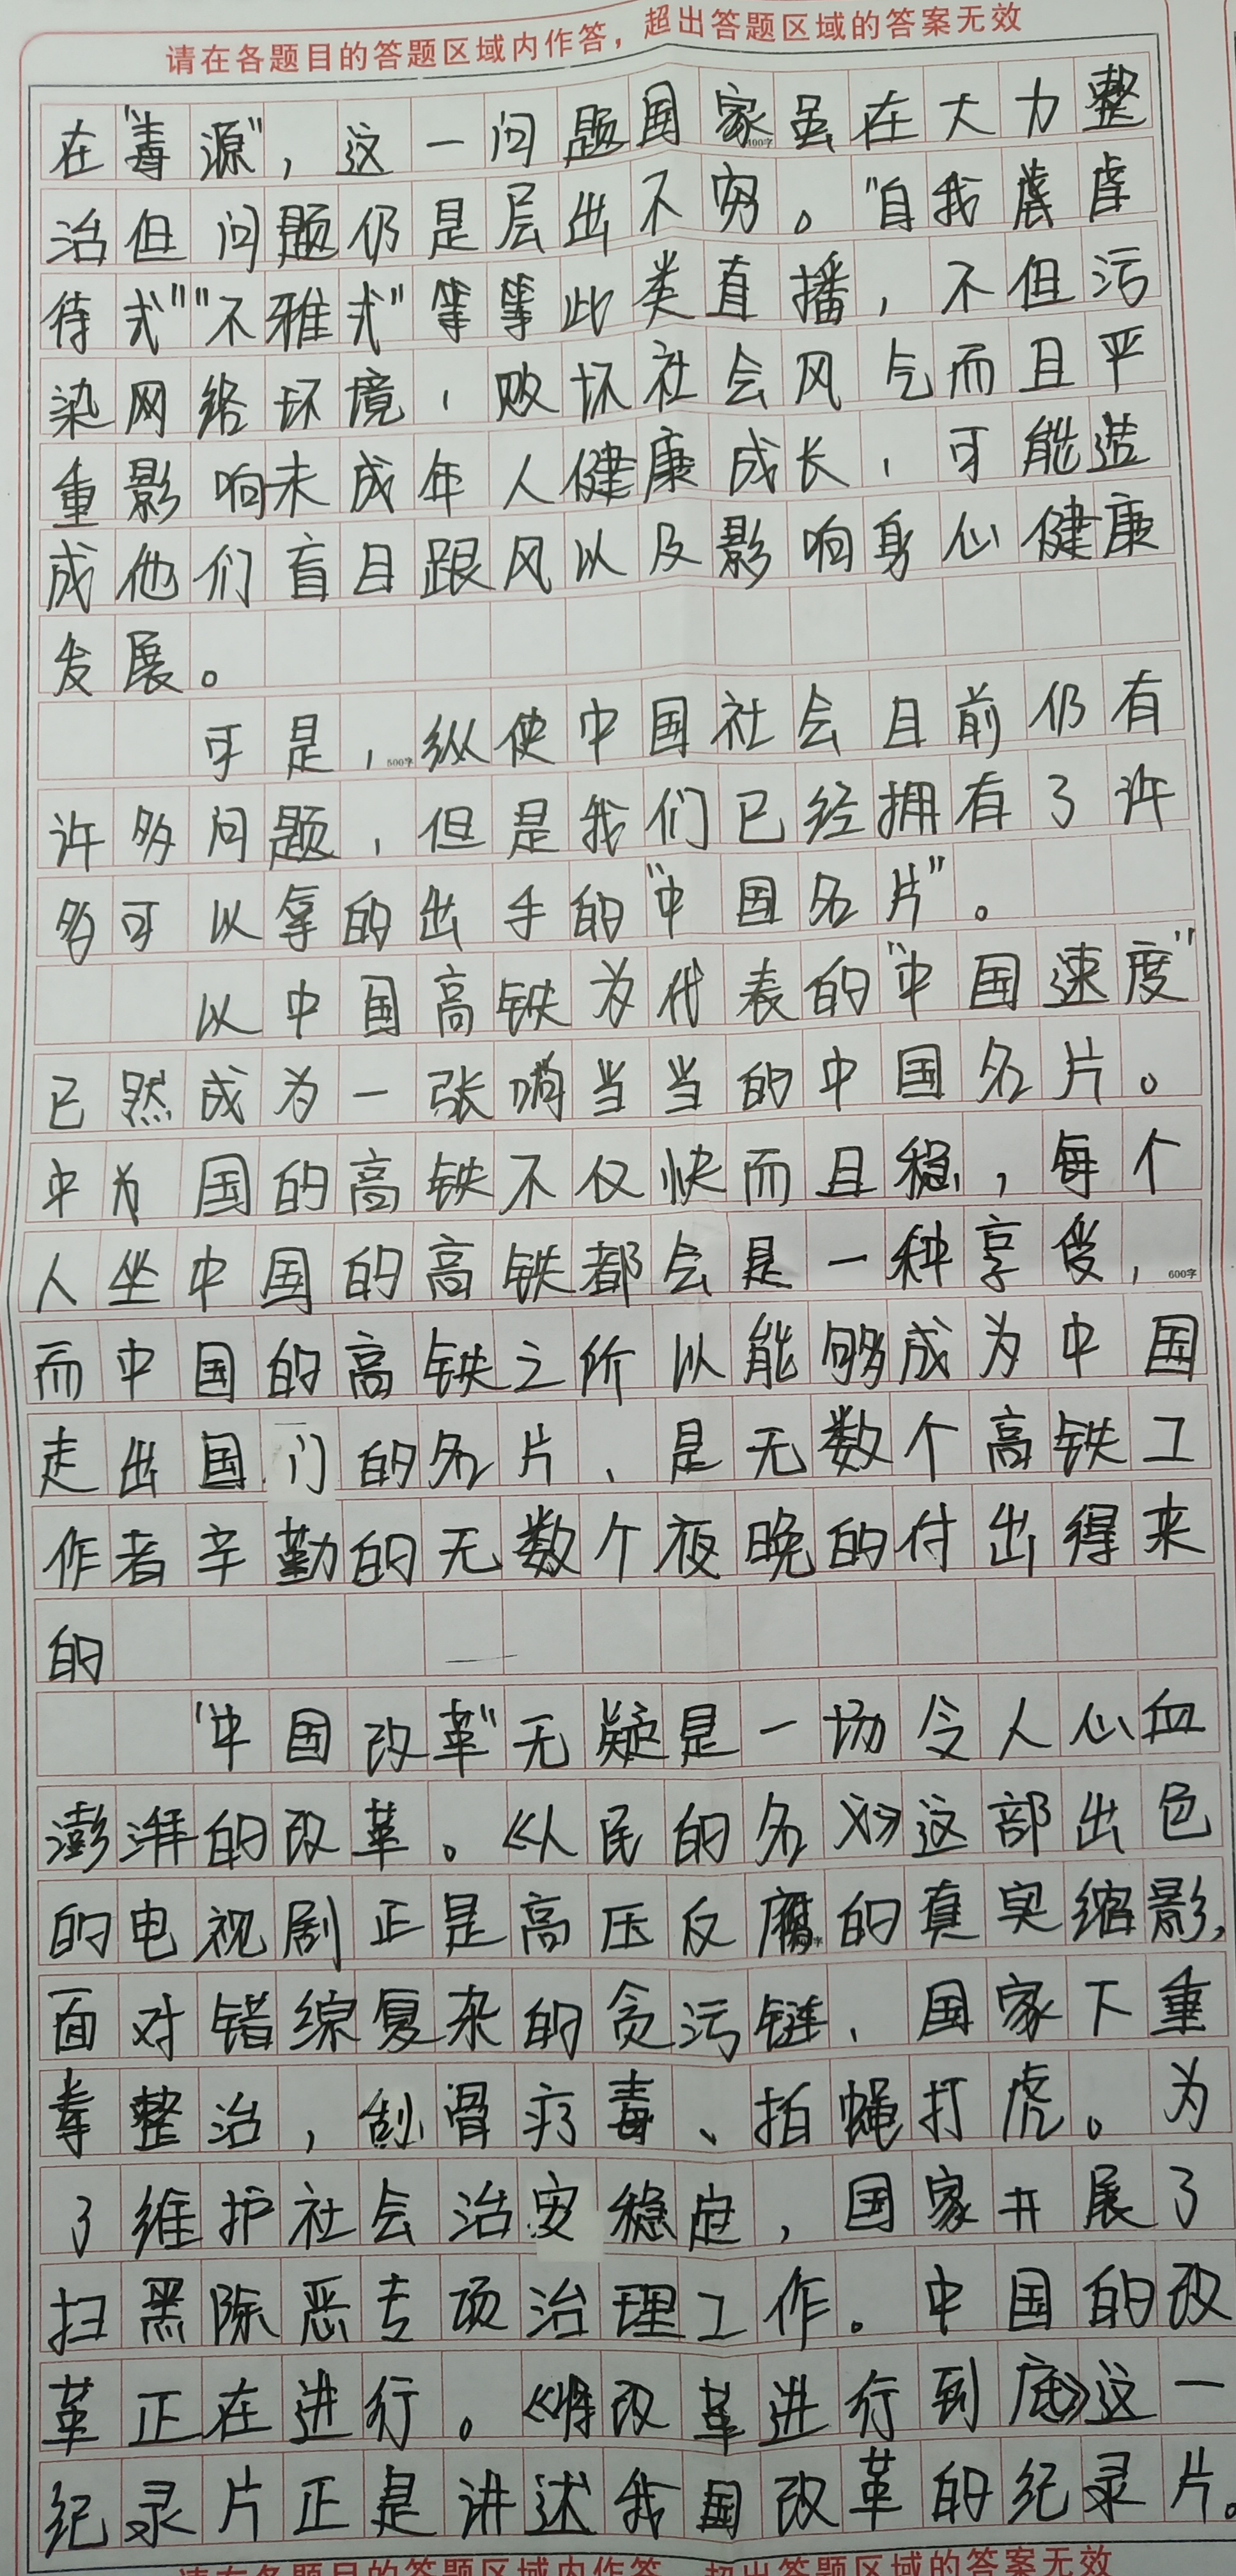 请在各题目的答题区域内作答，超出答题区域的答案无效
在“毒源”，这一问题国家虽在大力整
治但问题仍是层出不穷。“自我虐
待式”“不雅式”等等此类直播，不但污
染网络环境，败坏社会风气而且严
重影响未成年人健康成长，可能造
成他们盲目跟风以及影响身心健康
发展。
可是，纵使中国社会目前仍有
500字
许多问题，但是我们已经拥有了许
多可以拿的出手的“中国名片”。
以中国高铁为代表的“中国速度”
已然成为一张响当当的中国名片。
中为国的高铁不仅快而且稳，每个
人坐中国的高铁都会是一种享受，
600字
而中国的高铁之所以能够成为中国
走出国门的名片，是无数个高铁工
作者辛勤的无数个夜晚的付出得来
的
“中国改革”无疑是一场令人心血
澎湃的改革。《人民的名义》这部出色
的电视剧正是高压反腐的真实缩影，
面对错综复杂的贪污链，国家下重
拳整治，刮骨疗毒、拍蝇打虎。为
了维护社会治安稳定，国家开展了
扫黑除恶专项治理工作。中国的改
革正在进行。《将改革进行到底》这一
纪录片正是讲述我国改革的纪录片。
请在各题目的答题区域内作答，超出答题区域的答案无效